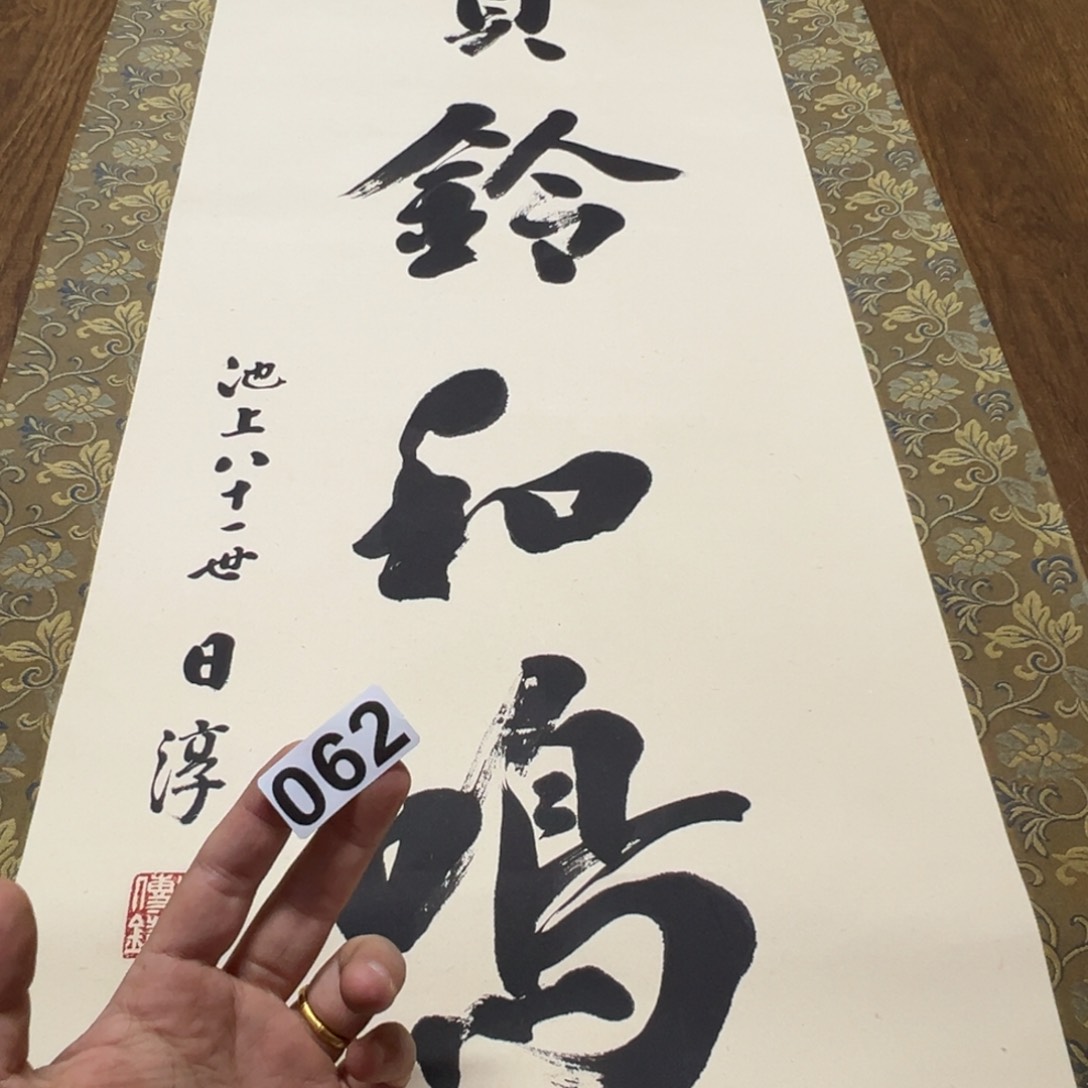 鈴和鳴
池上八十一世 日淳
062